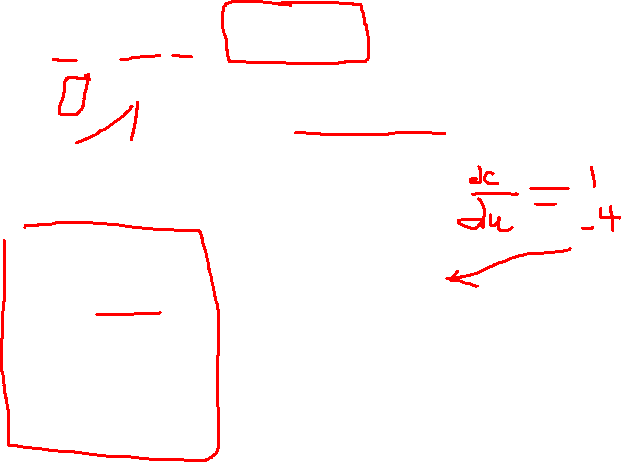 dx/du = 1/-4